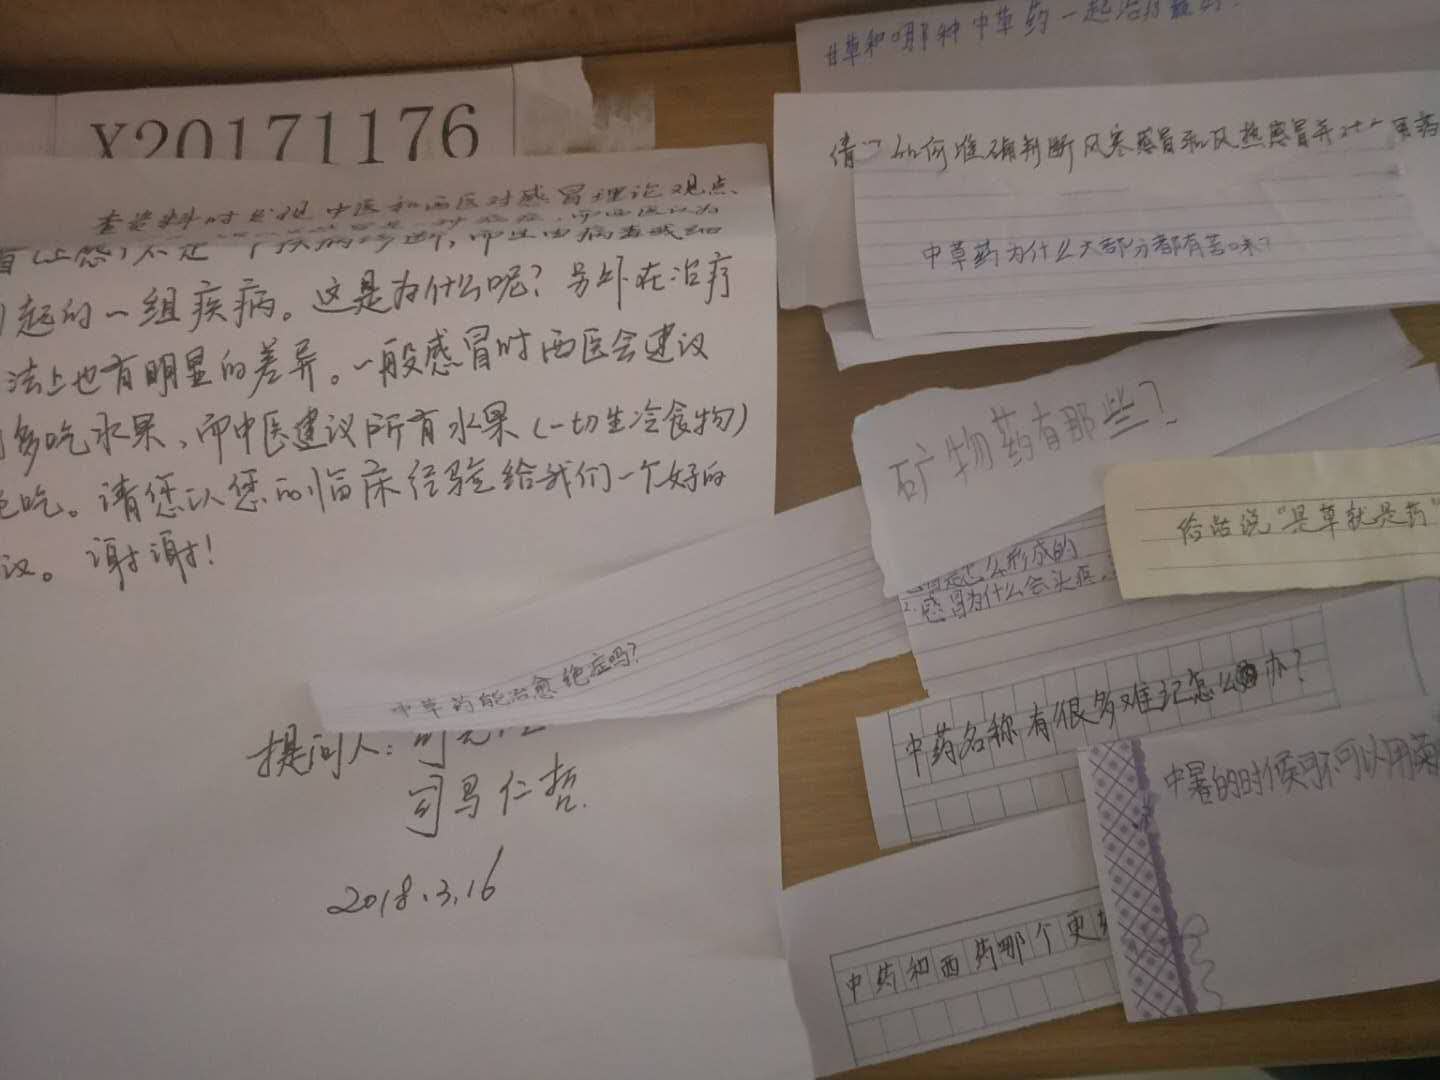 X20171176
查资料时发现中医和西医对感冒理论观点
起的一组疾病。这是为什么呢？另外在治疗
法上也有明显的差异。一般感冒时西医会建议
多吃水果，而中医建议所有水果（一切生冷食物）
吃。请您以您的临床经验给我们一个好的
议。谢谢！
中草药能治愈绝症吗？
提问人：
司马仁哲
2018.3.16
甘草和哪种中草药一起治
如何准确判断风寒感冒和风热感冒并
中草药为什么大部分都有苦味？
矿物药有那些？
俗话说“是草就是药”
怎么形成的
2.感冒为什么会头疼
中药名称有很多难记怎么办？
中暑的时候可不可以用
中药和西药哪个更